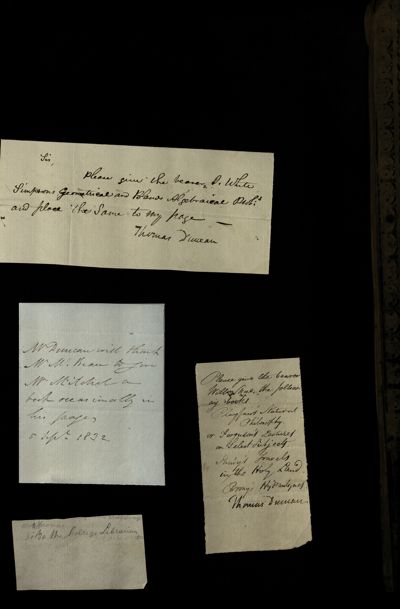 Sir,
Please give the bearer, D. White
Simpsons Geometrical and Blands Algebraical Prob.s
and place the Same to my page
Thomas Duncan
Mr Duncan will thank
Mr to give
Mr Mitchel a
book occasionally in
his page,
5 Sept. 1832
Please give the bearer
the follow-
ing books
National
Philosophy
or Ferguson's Lectures
on Select Subjects
Travels
in the Holy Land
Thomas Duncan
to the College Librarian